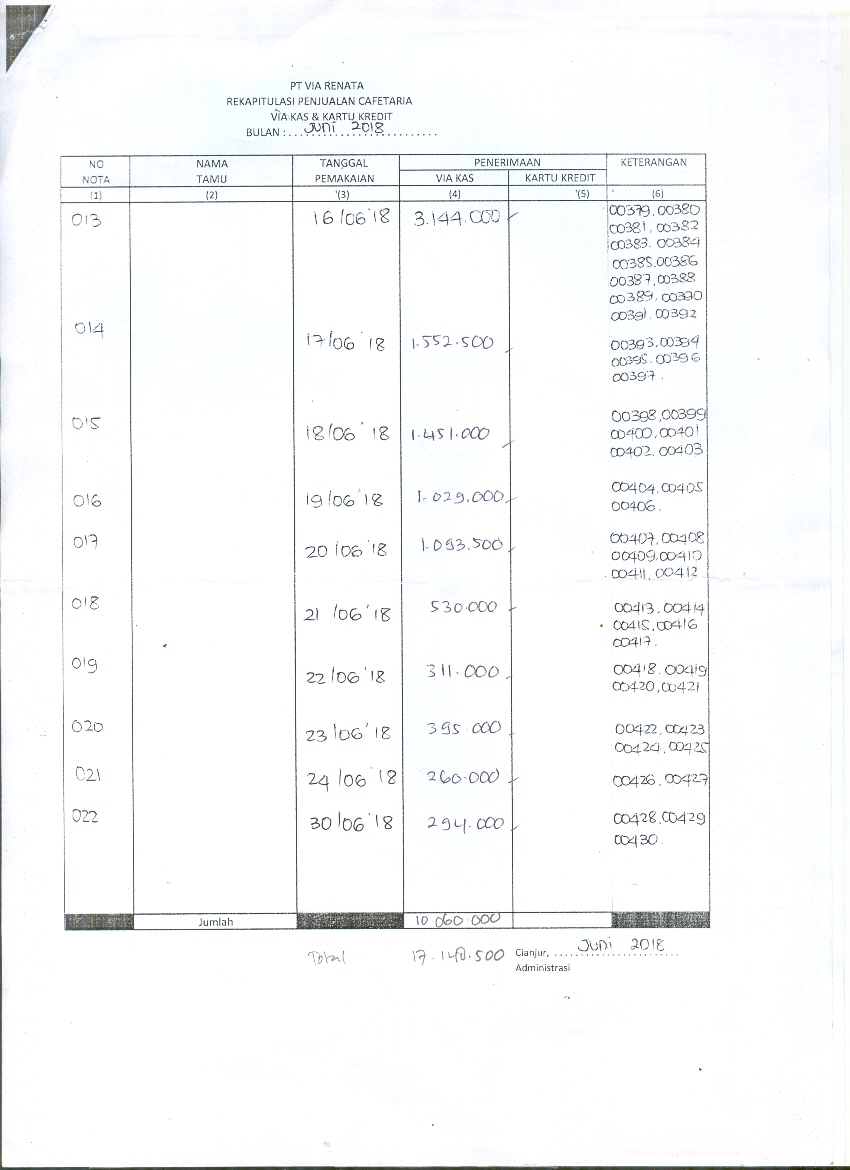 PT VIA RENATA
REKAPITULASI PENJUALAN CAFETARIA
VIA KAS & KARTU KREDIT
BULAN : JUNI 2018
NO NOTA NAMA TAMU TANGGAL PEMAKAIAN PENERIMAAN KETERANGAN
VIA KAS KARTU KREDIT
(1) (2) '(3) (4) '(5) ' (6)
013 16/06'18 3.144.000 00379,00380
00381,00382
00383.00384
00385.00386
00387,00388
00389,00390
00391,00392
014 17/06'18 1.552.500 00393.00394
00395.00396
00397.
015 18/06'18 1.451.000 00398,00399
00400,00401
00402.00403
016 19/06'18 1.029.000 00404.00405
00406.
017 20/06'18 1.093.500 00407,00408
00409.00410
00411,00412
018 21/06'18 530.000 00413,00414
00415,00416
00417.
019 22/06'18 311.000 00418.00419
00420,00421
020 23/06'18 395.000 00422,00423
00424,00425
021 24/06'18 260.000 00426,00427
022 30/06'18 294.000 00428,00429
00430.
Jumlah 10.060.000
Total 17.140.500 Cianjur, JUNI 2018
Administrasi